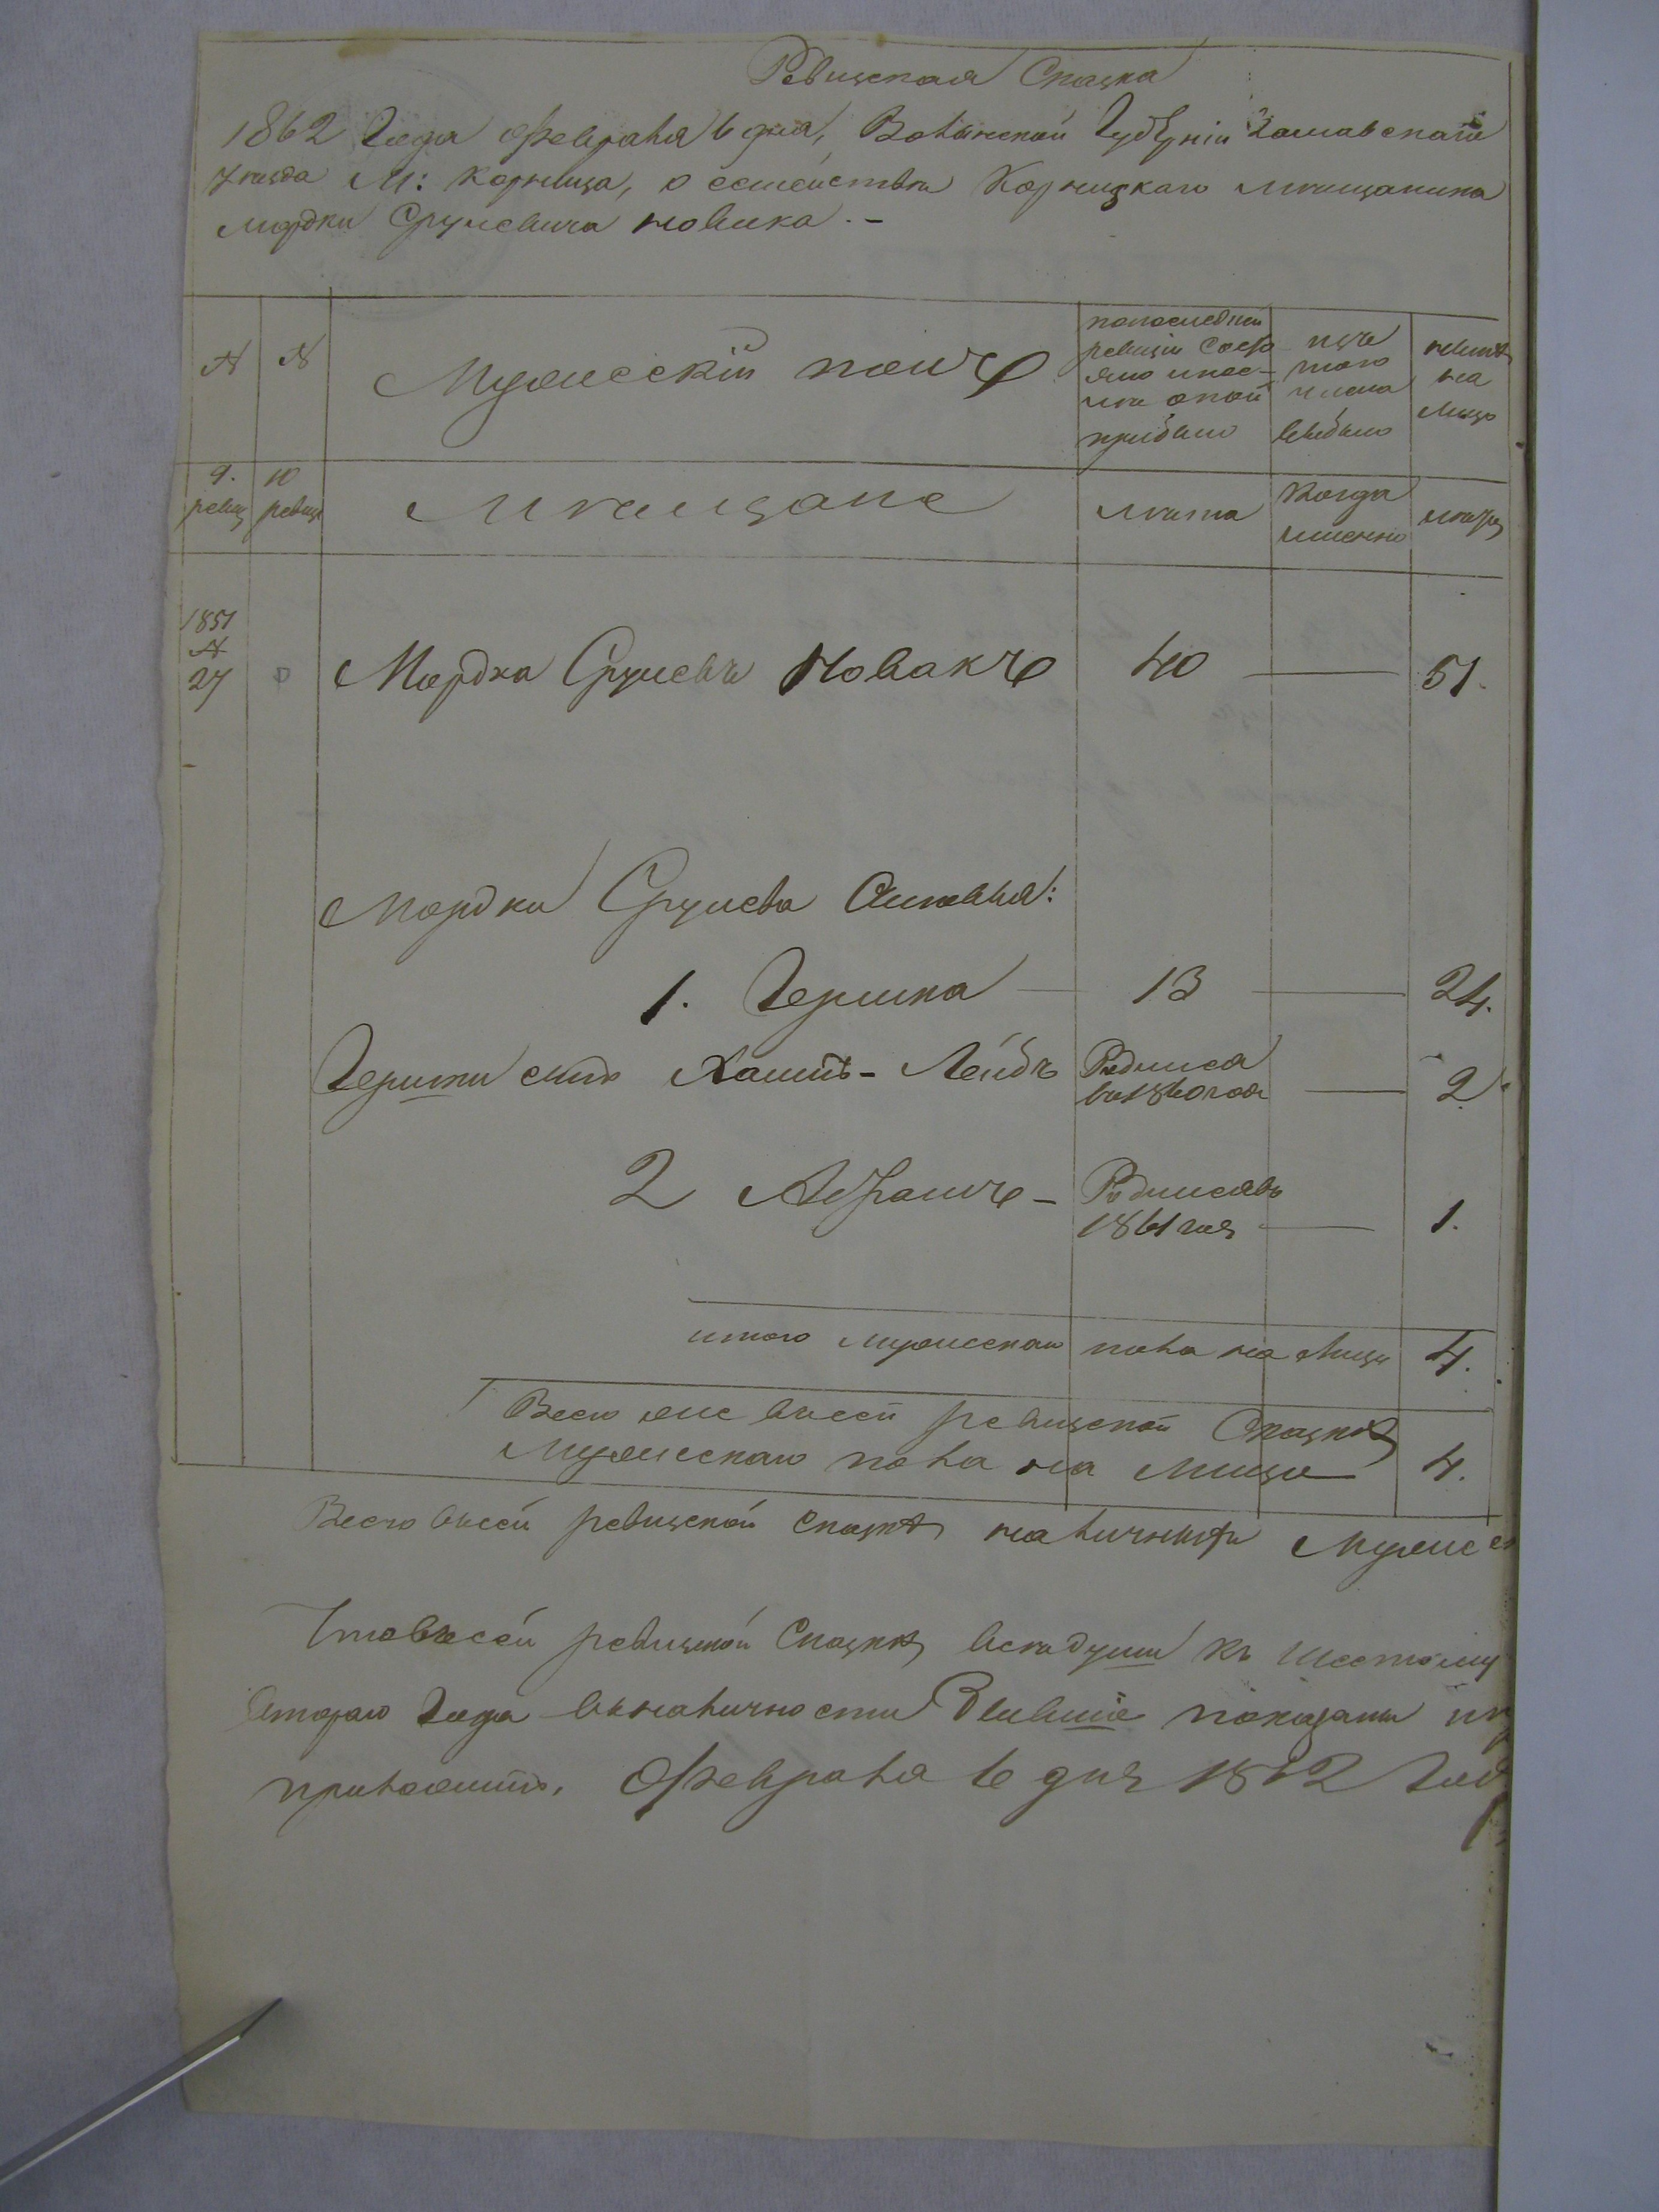 Ревизская Сказка
1862 Года Февраля 6 дня, Волынской Губерніи Заславскаго
уѣзда М: Корница, о семействѣ Корницкаго мѣщанина
мордки Срулевича новика. -
№ № Мужескій полъ
по послѣдней ревизіи состояло и послѣ оной прибыло
изъ того числа выбыло
нынѣ на лицо
9. ревиз 10 ревиз Мѣщане лѣта Когда именно лѣта
1851
№
27 Мордка Срулевъ Новакъ 40 — 51.
Мордки Срулева Сыновья:
1. Гершка — 13 — 24.
Гершки сынъ Хаимъ-Лейбъ Родился в 1860 года — 2.
2 Абрамъ - Родился въ 1861 года — 1.
итого мужескаго пола на лицо 4.
Всего же в сей ревизской Сказкѣ
Мужескаго пола на лицо 4.
Всего в сей ревизской сказкѣ наличныхъ Мужеск
Что въ сей ревизской Сказкѣ всѣ души къ Шестому
Втораго Года в наличности бывшіе показаны и
Февраля 6 дня 1862 Года